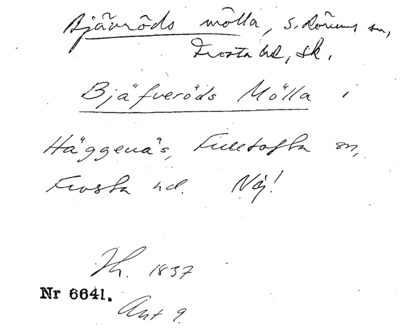 Bjärröds mölla, S. Rörums sn,
Frosta hd, Sk.
Bjäfveröds Mölla i
Häggenäs, Fulltofta sn,
Frosta hd. Näj!
Th. 1837
Nr 6641.
Ant 9.